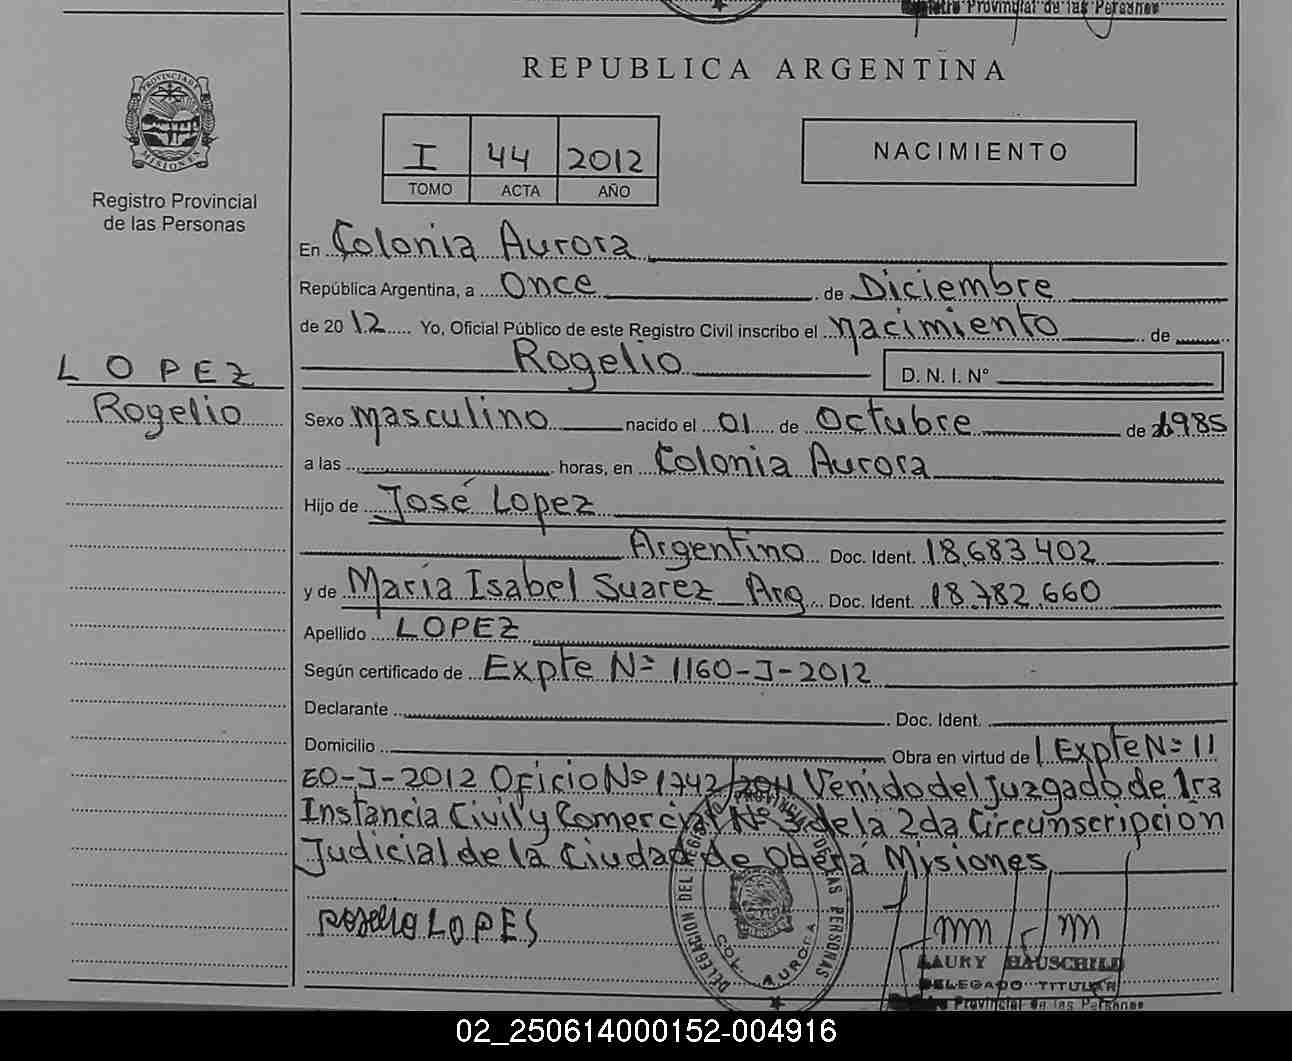 Registro Provincial de las Personas
PROVINCIA DE
MISIONES
Registro Provincial
de las Personas
REPUBLICA ARGENTINA
I 44 2012
TOMO ACTA AÑO
NACIMIENTO
En Colonia Aurora
República Argentina, a Once de Diciembre
de 2012 Yo, Oficial Público de este Registro Civil inscribo el nacimiento de
Rogelio D. N. I. N°
LOPEZ
Rogelio
Sexo masculino nacido el 01 de Octubre de 1985
a las horas, en Colonia Aurora
Hijo de José Lopez
Argentino Doc. Ident. 18.683.402
y de María Isabel Suarez Arg Doc. Ident. 18.782.660
Apellido LOPEZ
Según certificado de Expte Nº 1160-J-2012
Declarante Doc. Ident.
Domicilio Obra en virtud de Expte Nº 11
60-J-2012 Oficio Nº 1742/2011 Venido del Juzgado de 1ra
Instancia Civil y Comercial Nº 3 de la 2da Circunscripción
Judicial de la Ciudad de Oberá Misiones
Rogelio LOPES
DELEGACION DEL REGISTRO PROVINCIAL DE LAS PERSONAS
COL. AURORA
LAURY HAUSCHILD
DELEGADO TITULAR
Registro Provincial de las Personas
02_250614000152-004916